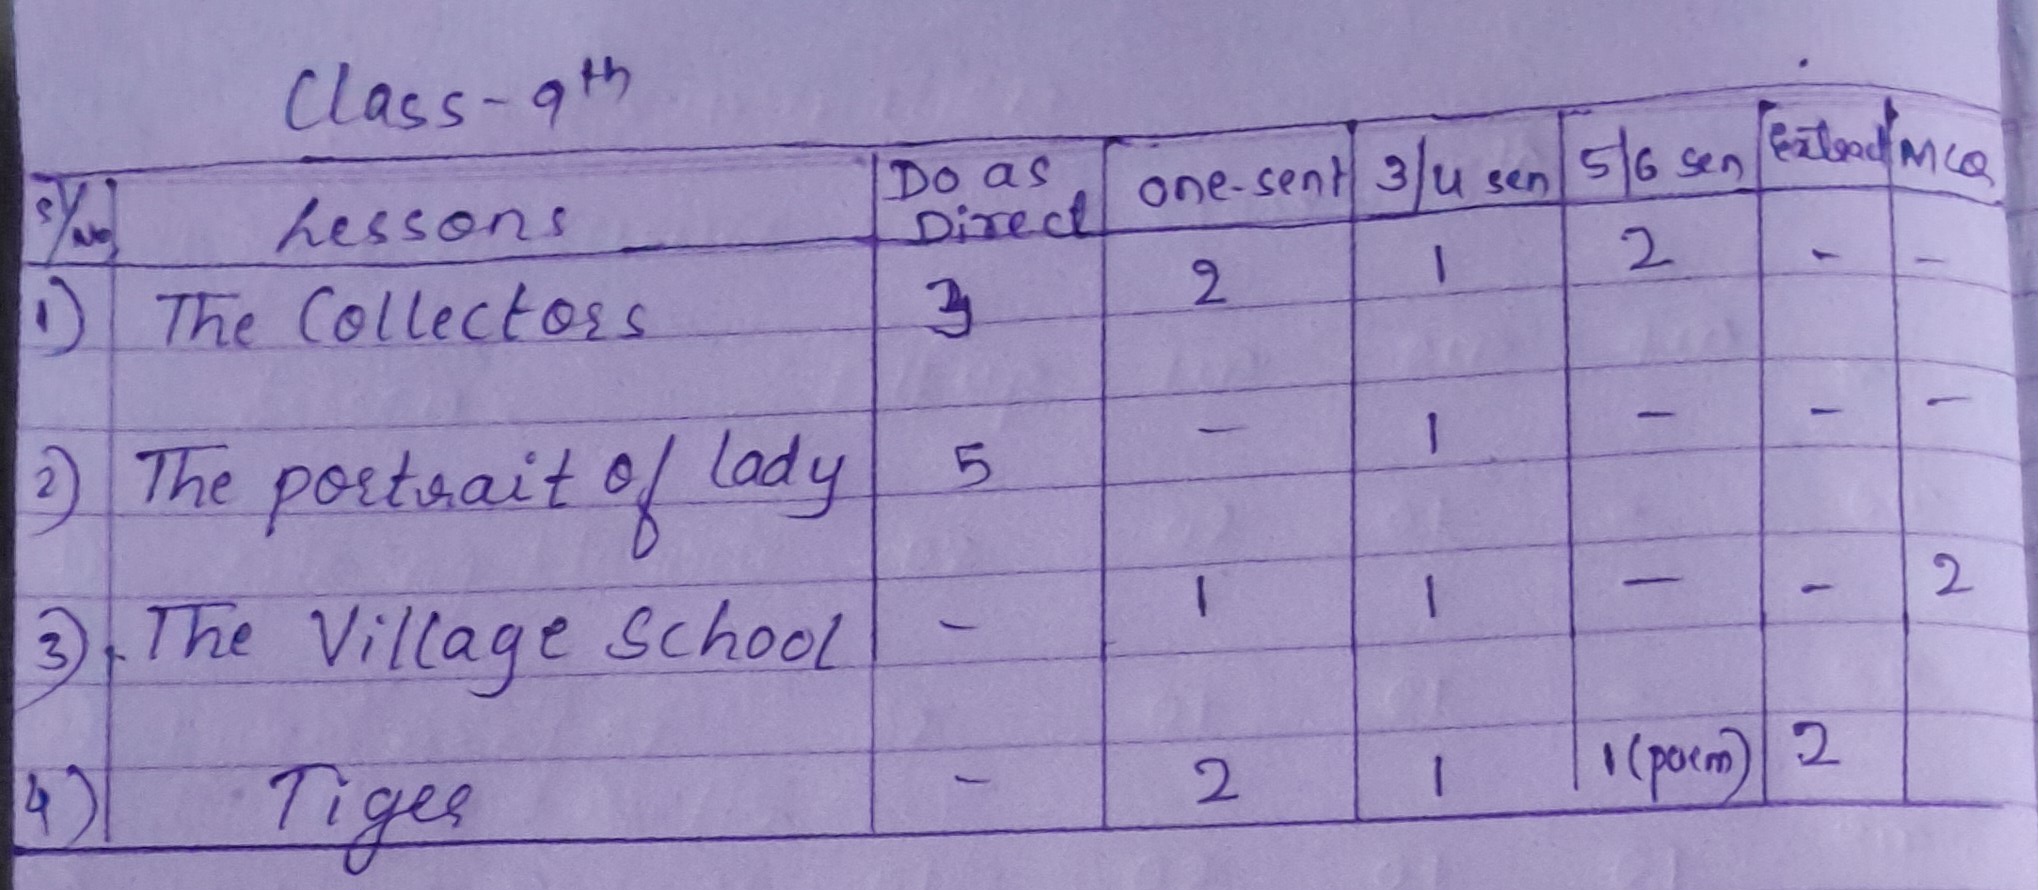 Class-9th
S/No Lessons Do as Direct one-sent 3/4 sen 5/6 sen Extract MCQ
1) The Collectors 3 2 1 2 - -
2) The portrait of lady 5 - 1 - - -
3) The Village School - 1 1 - - 2
4) Tiger - 2 1 1 (poem) 2